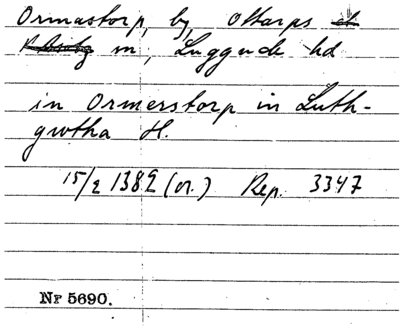 Ormastorp, by, Ottarps
sn, Luggude hd
in Ormerstorp in Luth-
gwtha H.
15/2 1382 (or.) Rep. 3347
Nr 5690.